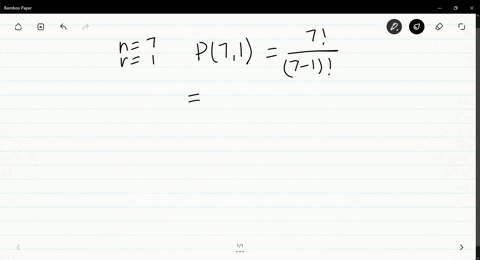 Bamboo Paper
n = 7
r = 1
P(7,1) = 7! / (7-1)!
=
1/1